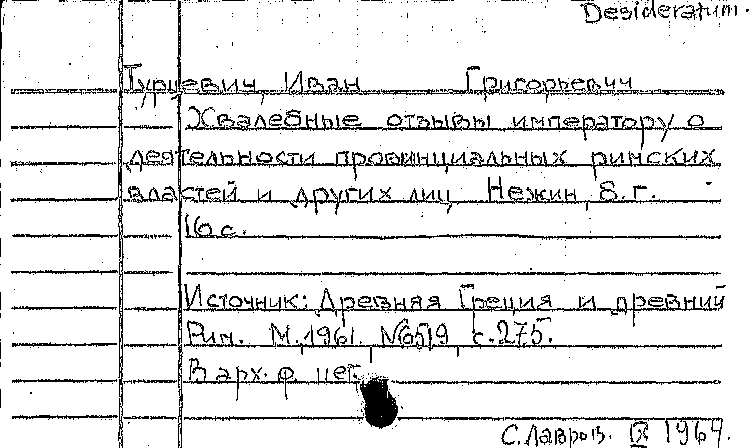 Desideratum.
Турцевич, Иван Григорьевич
Хвалебные отзывы императору о
деятельности провинциальных римских
властей и других лиц Нежин, б. г.
16 с.
Источник: Древняя Греция и древний
Рим. М., 1961. №6519, с. 275.
В арх. ф. нет.
С. Лавров. IX 1964.